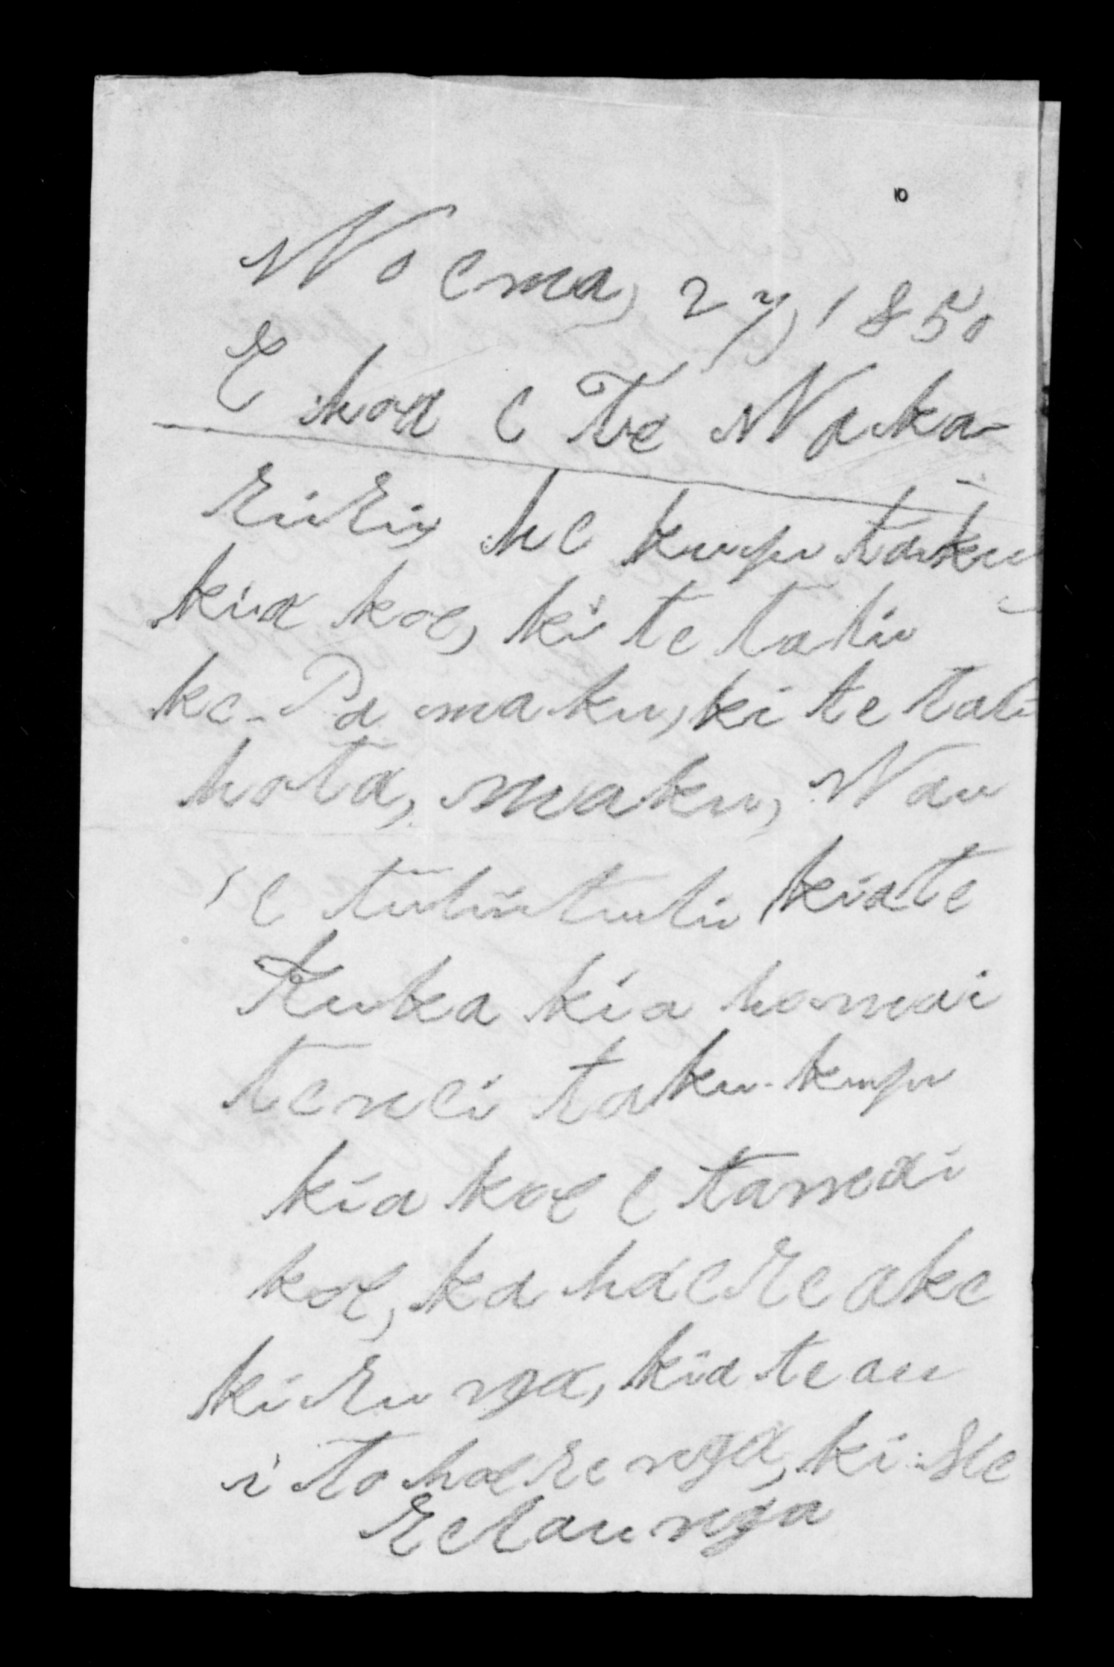 10
Noema, 27, 1850
E hoa e Te Maka
ririn, he kupu taku
kia koe, ki te tahi
ke. Pa maku, ki te tahi
hota, maku, Nau
e tuhituhi kia te
Kuka kia homai
tenei taku kupu
kia koe e tamai
koe, ka haere ake
ki runga, kia te au
i to haerenga, ki He
retaunga